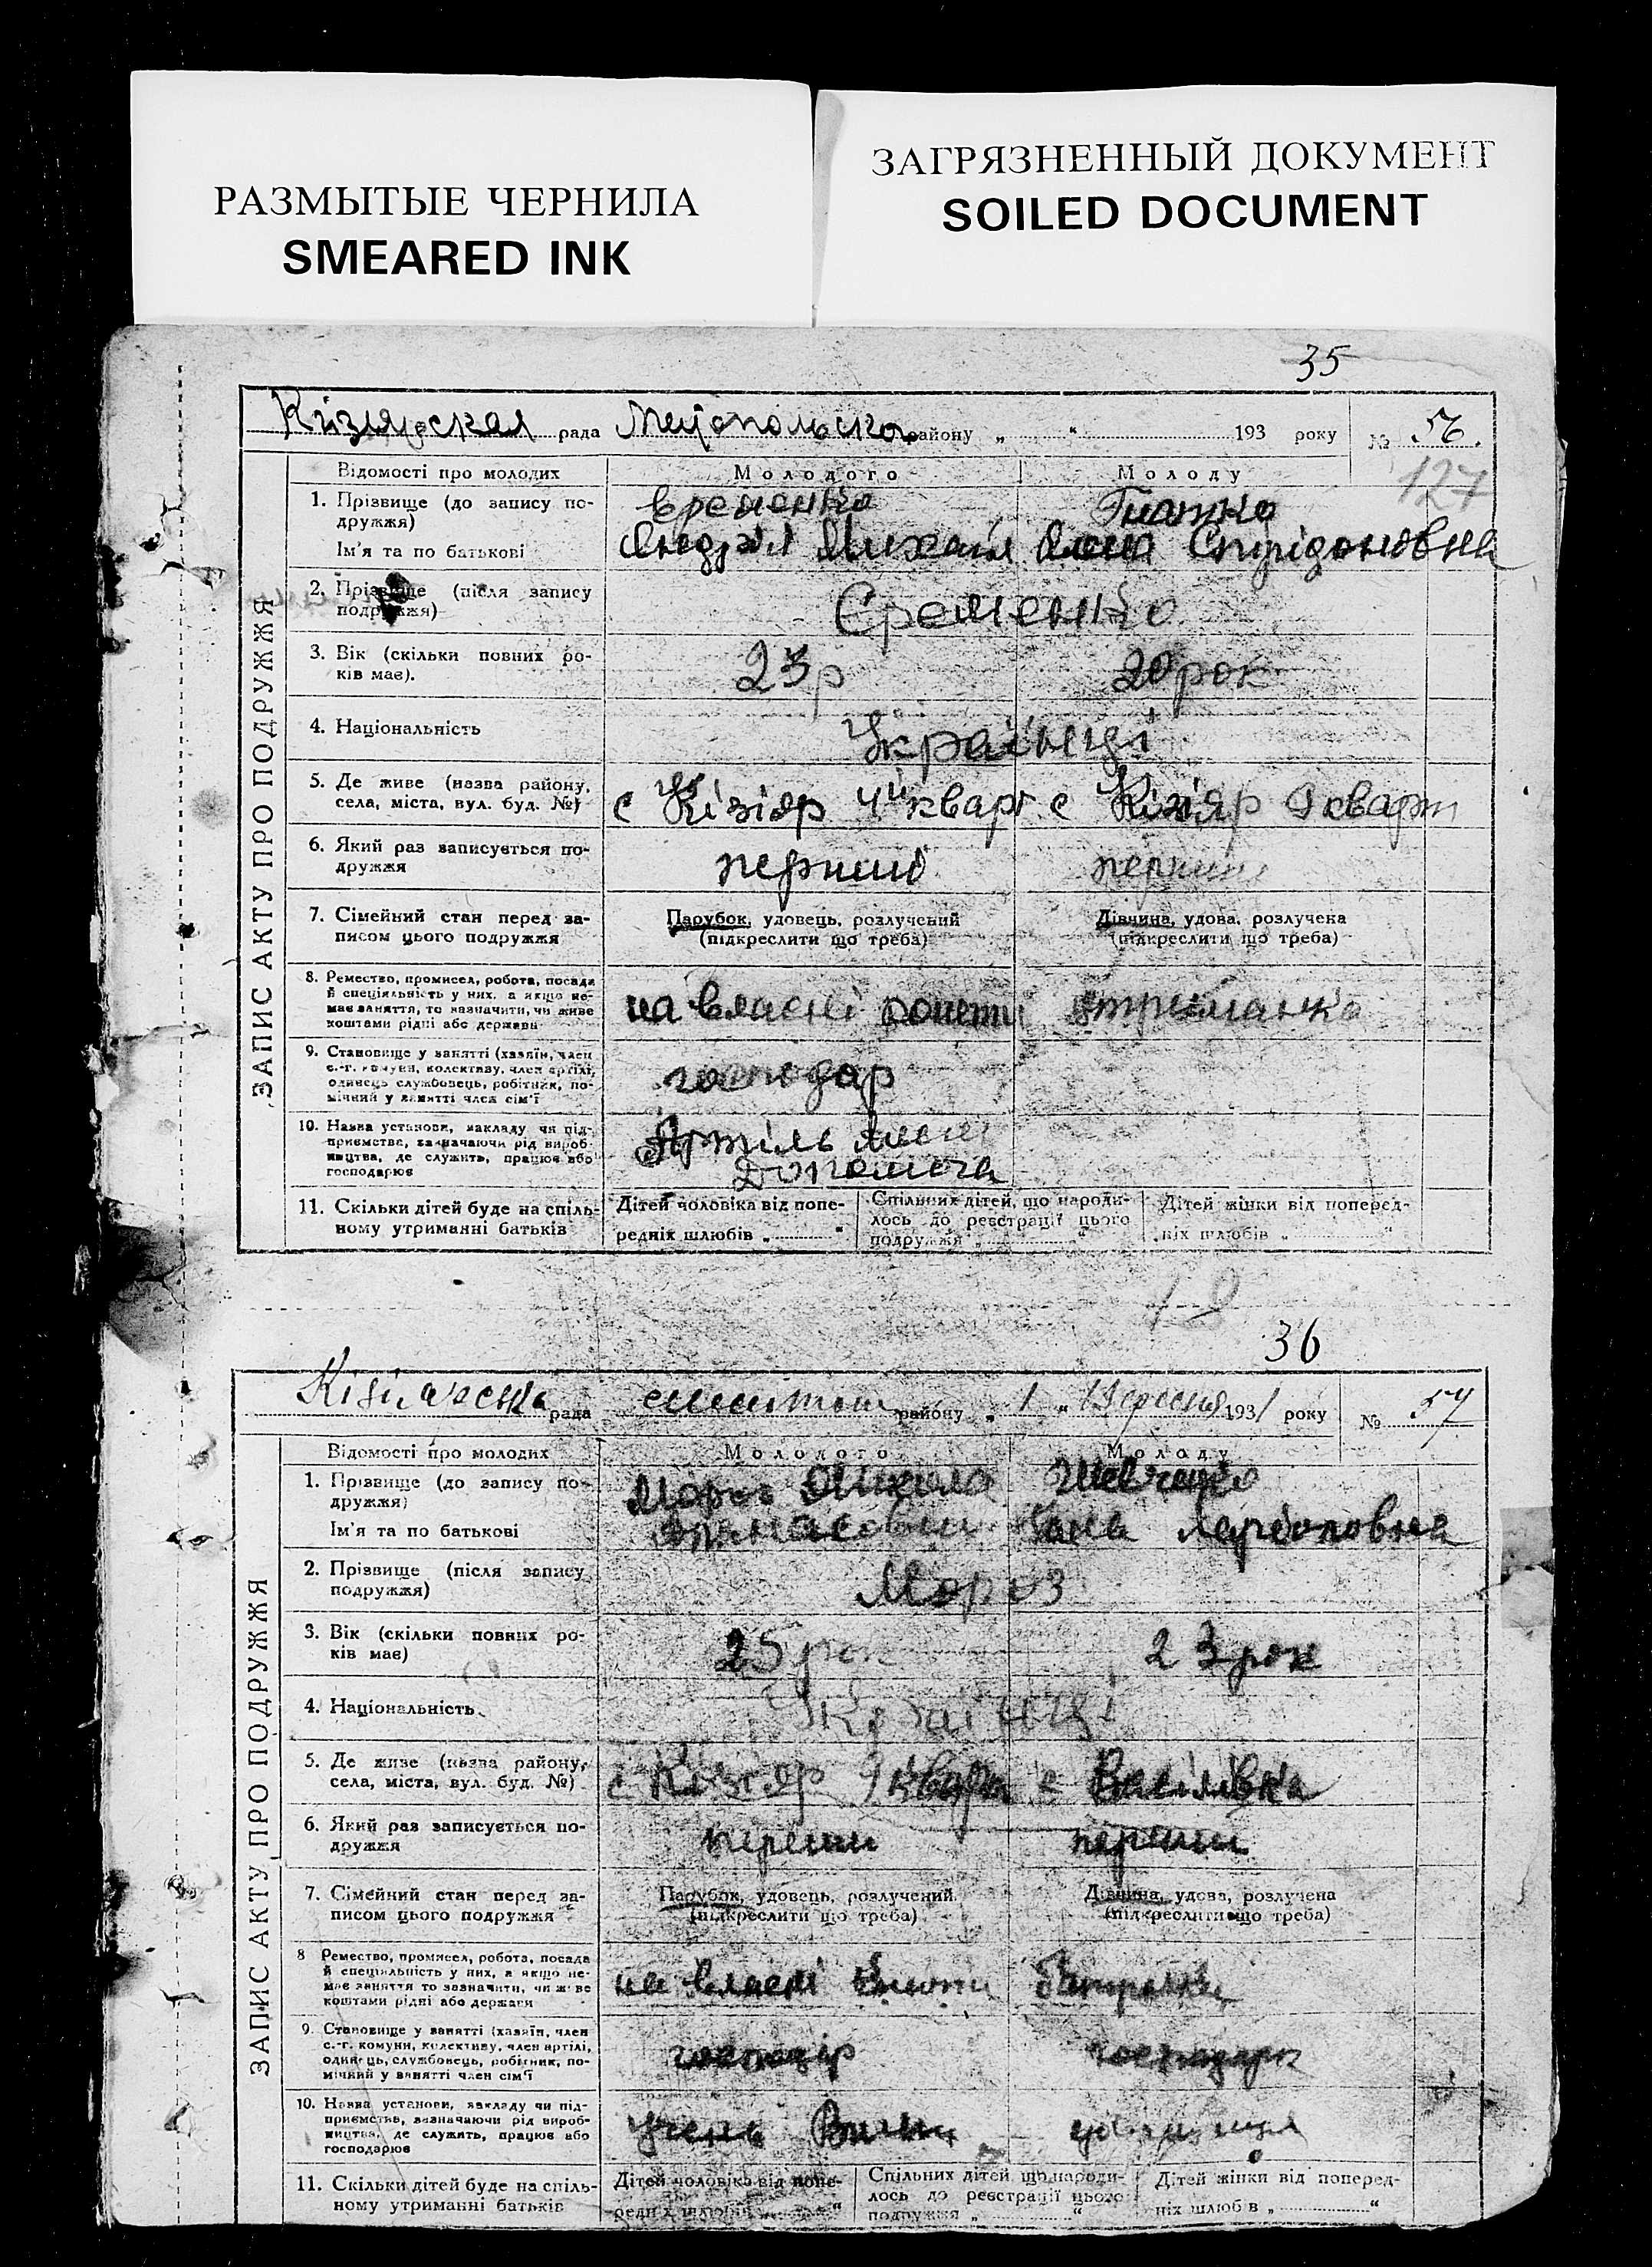 РАЗМЫТЫЕ ЧЕРНИЛА
SMEARED INK
ЗАГРЯЗНЕННЫЙ ДОКУМЕНТ
SOILED DOCUMENT
35
Кізлярская рада району „ “ 193 року № 56.
127
ЗАПИС АКТУ ПРО ПОДРУЖЖЯ
Відомості про молодих Молодого Молоду
1. Прізвище (до запису по-
дружжя)
Єременко Гнатко
Ім'я та по батькові Андрій Михаїл Спирідоновна
2. Прізвище (після запису
подружжя)
Єременко
3. Вік (скільки повних ро-
ків має).
23 р 20 рок
4. Національність Українці
5. Де живе (назва району,
села, міста, вул. буд. №)
с Кізіяр 4й кварт. с Кізіяр 9 кварт
6. Який раз записується по-
дружжя
перший перший
7. Сімейний стан перед за-
писом цього подружжя
Парубок, удовець, розлучений
(підкреслити що треба)
Дівчина, удова, розлучена
(підкреслити що треба)
8. Ремество, промисел, робота, посада
й спеціяльність у них, а якщо не-
має заняття, то зазначити, чи живе
коштами рідні або держави
на власні кошти утриманка
9. Становище у занятті (хазяїн, член
с.-г. комуни, колективу, член артілі,
одинець службовець, робітник, по-
мічний у занятті член сім'ї
господар
10. Назва установи, закладу чи під-
приємства, зазначаючи рід вироб-
ництва, де служить, працює або
господарює
Артіль
Допомога
11. Скільки дітей буде на спіль-
ному утриманні батьків
Дітей чоловіка від попе-
редніх шлюбів „ “
Спільних дітей, що народи-
лось до реєстрації цього
подружжя „ “
Дітей жінки від поперед-
ніх шлюбів „ “
36
рада району „ 1 “ Вересня 1931 року № 57
ЗАПИС АКТУ ПРО ПОДРУЖЖЯ
Відомості про молодих Молодого Молоду
1. Прізвище (до запису по-
дружжя)
Мороз Микола Шевченко
Ім'я та по батькові
2. Прізвище (після запису
подружжя)
Мороз
3. Вік (скільки повних ро-
ків має)
25 рок 23 рок
4. Національність Українці
5. Де живе (назва району,
села, міста, вул. буд. №)
с Кізіяр 9 кварт с Василівка
6. Який раз записується по-
дружжя
перший перший
7. Сімейний стан перед за-
писом цього подружжя
Парубок, удовець, розлучений
(підкреслити що треба)
Дівчина, удова, розлучена
(підкреслити що треба)
8 Ремество, промисел, робота, посада
й спеціяльність у них, а якщо не-
має заняття то зазначити, чи живе
коштами рідні або держави
на власні
9. Становище у занятті (хазяїн, член
с.-г. комуни, колективу, член артілі,
одинець, службовець, робітник, по-
мічний у занятті член сім'ї
господар
10. Назва установи, закладу чи під-
приємства, зазначаючи рід вироб-
ництва, де служить, працює або
господарює
11. Скільки дітей буде на спіль-
ному утриманні батьків
Дітей чоловіка від попе-
редніх шлюбів „ “
Спільних дітей що народи-
лось до реєстрації цього
подружжя „ “
Дітей жінки від поперед-
ніх шлюбів „ “